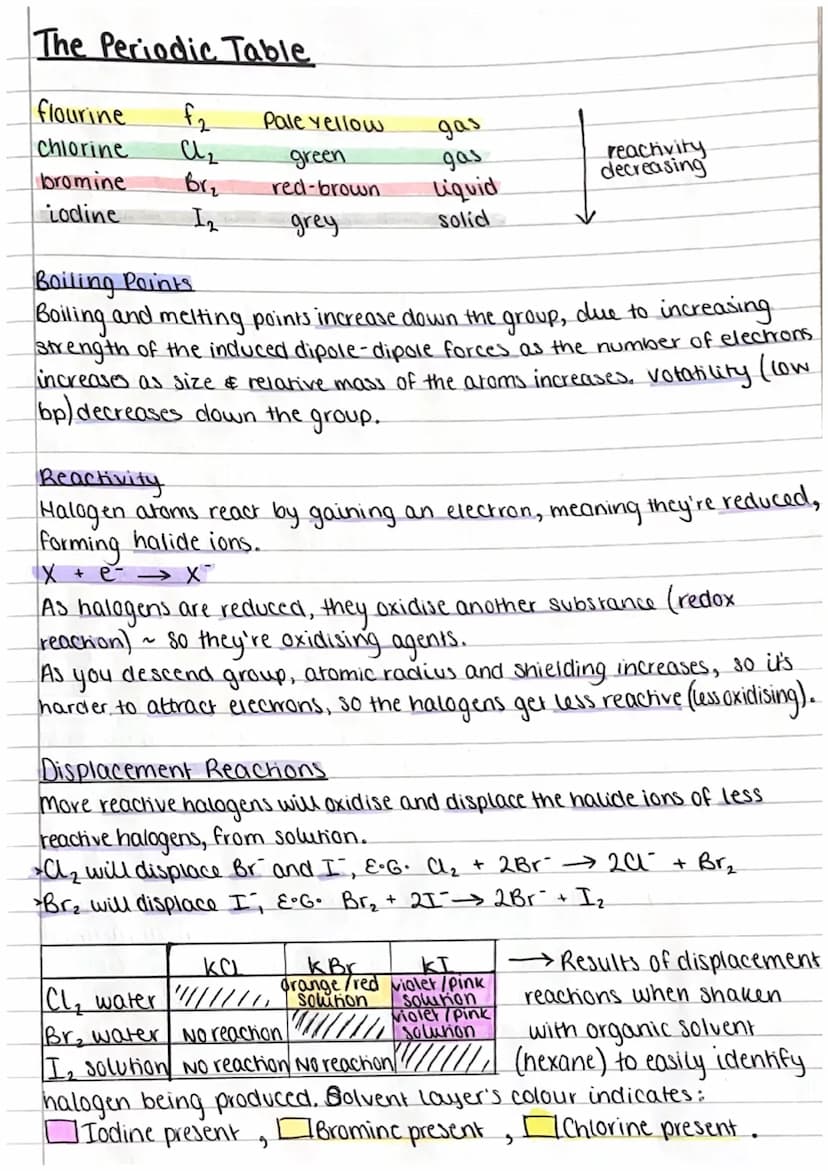 The Periodic Table
flourine f₂ Pale yellow gas
chlorine Cl₂ green gas
bromine Br₂ red-brown liquid
iodine I₂ grey solid
reactivity
decreasing
Boiling Points
Boiling and melting points increase down the group, due to increasing
strength of the induced dipole-dipole forces as the number of electrons
increases as size & relative mass of the atoms increases. votatility (low
bp) decreases down the group.
Reactivity
Halogen atoms react by gaining an electron, meaning they're reduced,
forming halide ions.
X + e⁻ → X⁻
As halogens are reduced, they oxidise another substance (redox
reaction) ~ so they're oxidising agents.
As you descend group, atomic radius and shielding increases, so it's
harder to attract electrons, so the halogens get less reactive (less oxidising).
Displacement Reactions
More reactive halogens will oxidise and displace the halide ions of less
reactive halogens, from solution.
➤Cl₂ will displace Br⁻ and I⁻, E.G. Cl₂ + 2Br⁻ → 2Cl⁻ + Br₂
➤Br₂ will displace I⁻, E.G. Br₂ + 2I⁻ → 2Br⁻ + I₂
KCl KBr KI
Cl₂ water orange/red solution violet/pink solution
Br₂ water No reaction violet/pink solution
I₂ solution No reaction No reaction
→ Results of displacement
reactions when shaken
with organic solvent
(hexane) to easily identify
halogen being produced. Solvent layer's colour indicates:
Iodine present , Bromine present , Chlorine present .